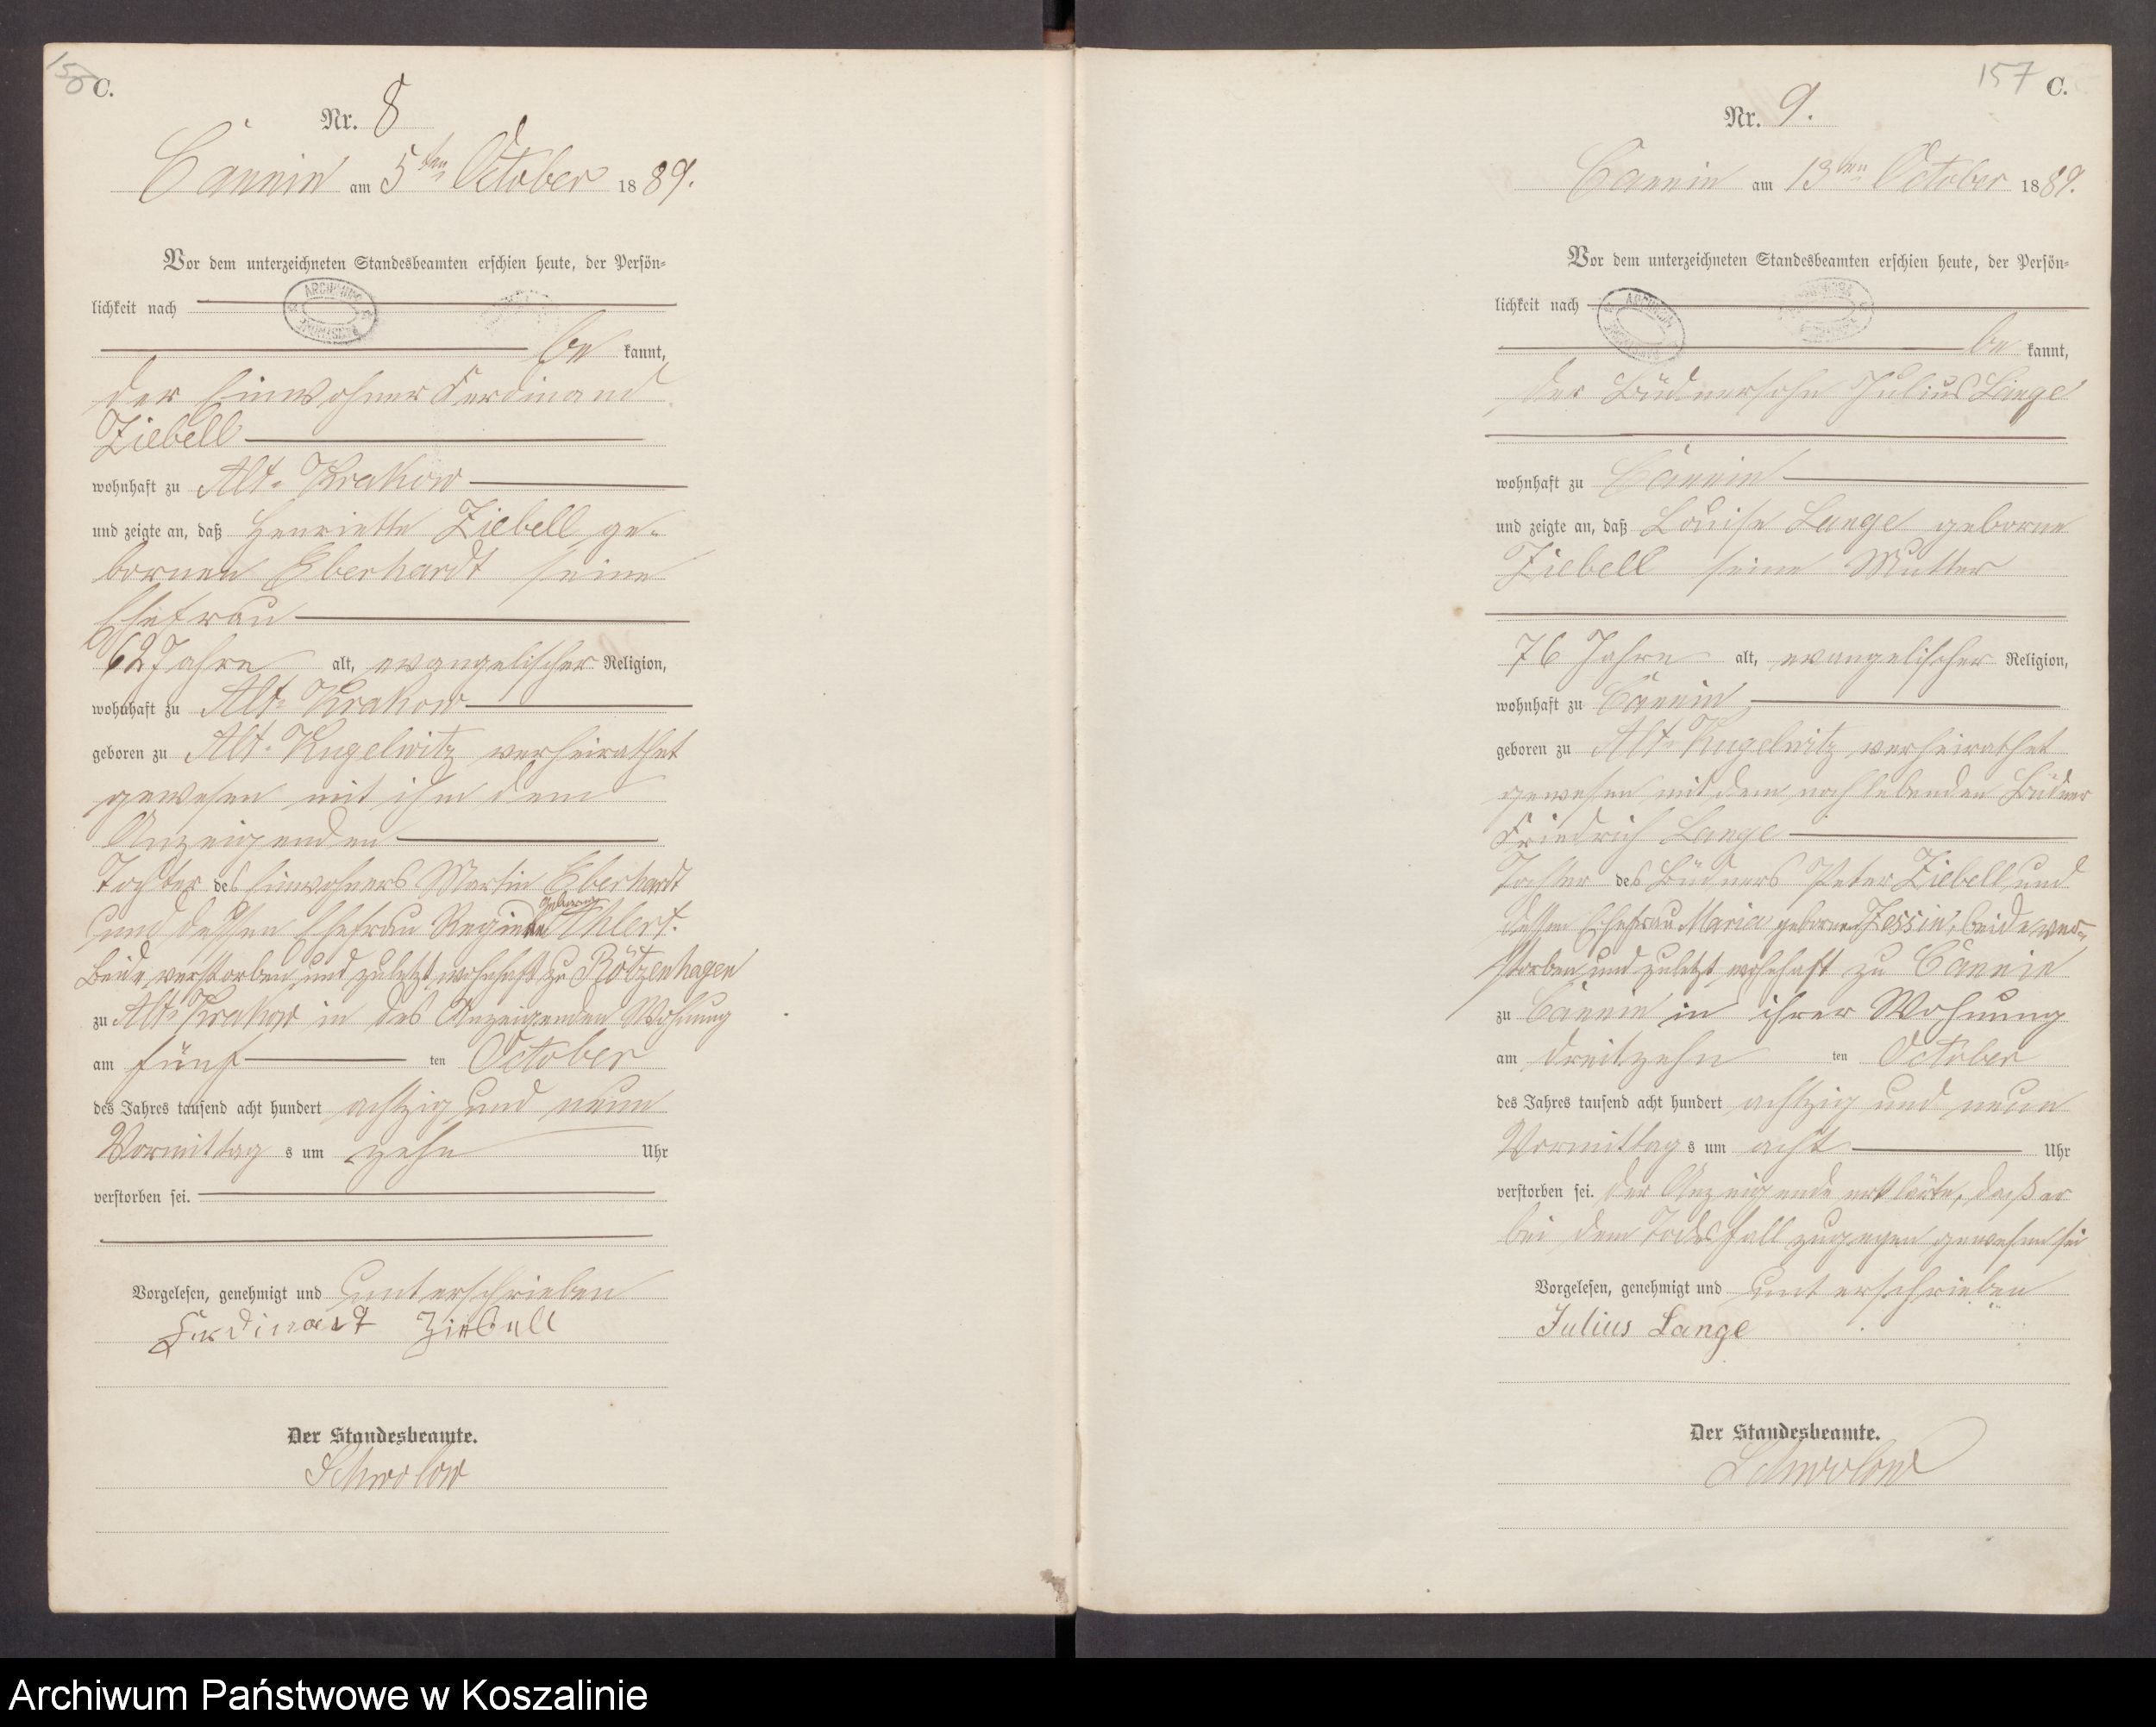 C.
Nr. 8
Cannin am 5ten October 1889.
Vor dem unterzeichneten Standesbeamten erschien heute, der Persön-
lichkeit nach
be kannt,
der Einwohner Ferdinand
Ziebell
wohnhaft zu Alt-Krakow
und zeigte an, daß Henriette Ziebell ge-
bornen Eberhardt seine
Ehefrau
62 Jahre alt, evangelischer Religion,
wohnhaft zu Alt-Krakow
geboren zu Alt-Kugelwitz verheirathet
gewesen mit ihm dem
Anzeigenden
Tochter des Einwohners Martin Eberhardt
und dessen Ehefrau Regine geborne Ahlert.
Beide verstorben und zuletzt wohnhaft zu Rötzenhagen
zu Alt-Krakow in des Anzeigenden Wohnung
am fünf ten October
des Jahres tausend acht hundert achtzig und neun
Vormittag s um zehn Uhr
verstorben sei.
Vorgelesen, genehmigt und unterschrieben
Ferdinand Ziebell
Der Standesbeamte.
Schwolow
157 C.
Nr. 9.
Cannin am 13ten October 1889.
Vor dem unterzeichneten Standesbeamten erschien heute, der Persön-
lichkeit nach
be kannt,
der Büdnersohn Julius Lange
wohnhaft zu Cannin
und zeigte an, daß Louise Lange geborne
Ziebell seine Mutter
76 Jahre alt, evangelischer Religion,
wohnhaft zu Cannin
geboren zu Alt-Kugelwitz verheirathet
gewesen mit dem noch lebenden Büdner
Friedrich Lange
Tochter des Büdners Peter Ziebell und
dessen Ehefrau Maria gebornen Zessin, beide ver-
storben und zuletzt wohnhaft zu Cannin
zu Cannin in ihrer Wohnung
am dreizehn ten October
des Jahres tausend acht hundert achtzig und neun
Vormittag s um acht Uhr
verstorben sei. Der Anzeigende erklärte, daß er
bei dem Todesfall zugegen gewesen sei
Vorgelesen, genehmigt und unterschrieben
Julius Lange
Der Standesbeamte.
Schwolow
Archiwum Państwowe w Koszalinie